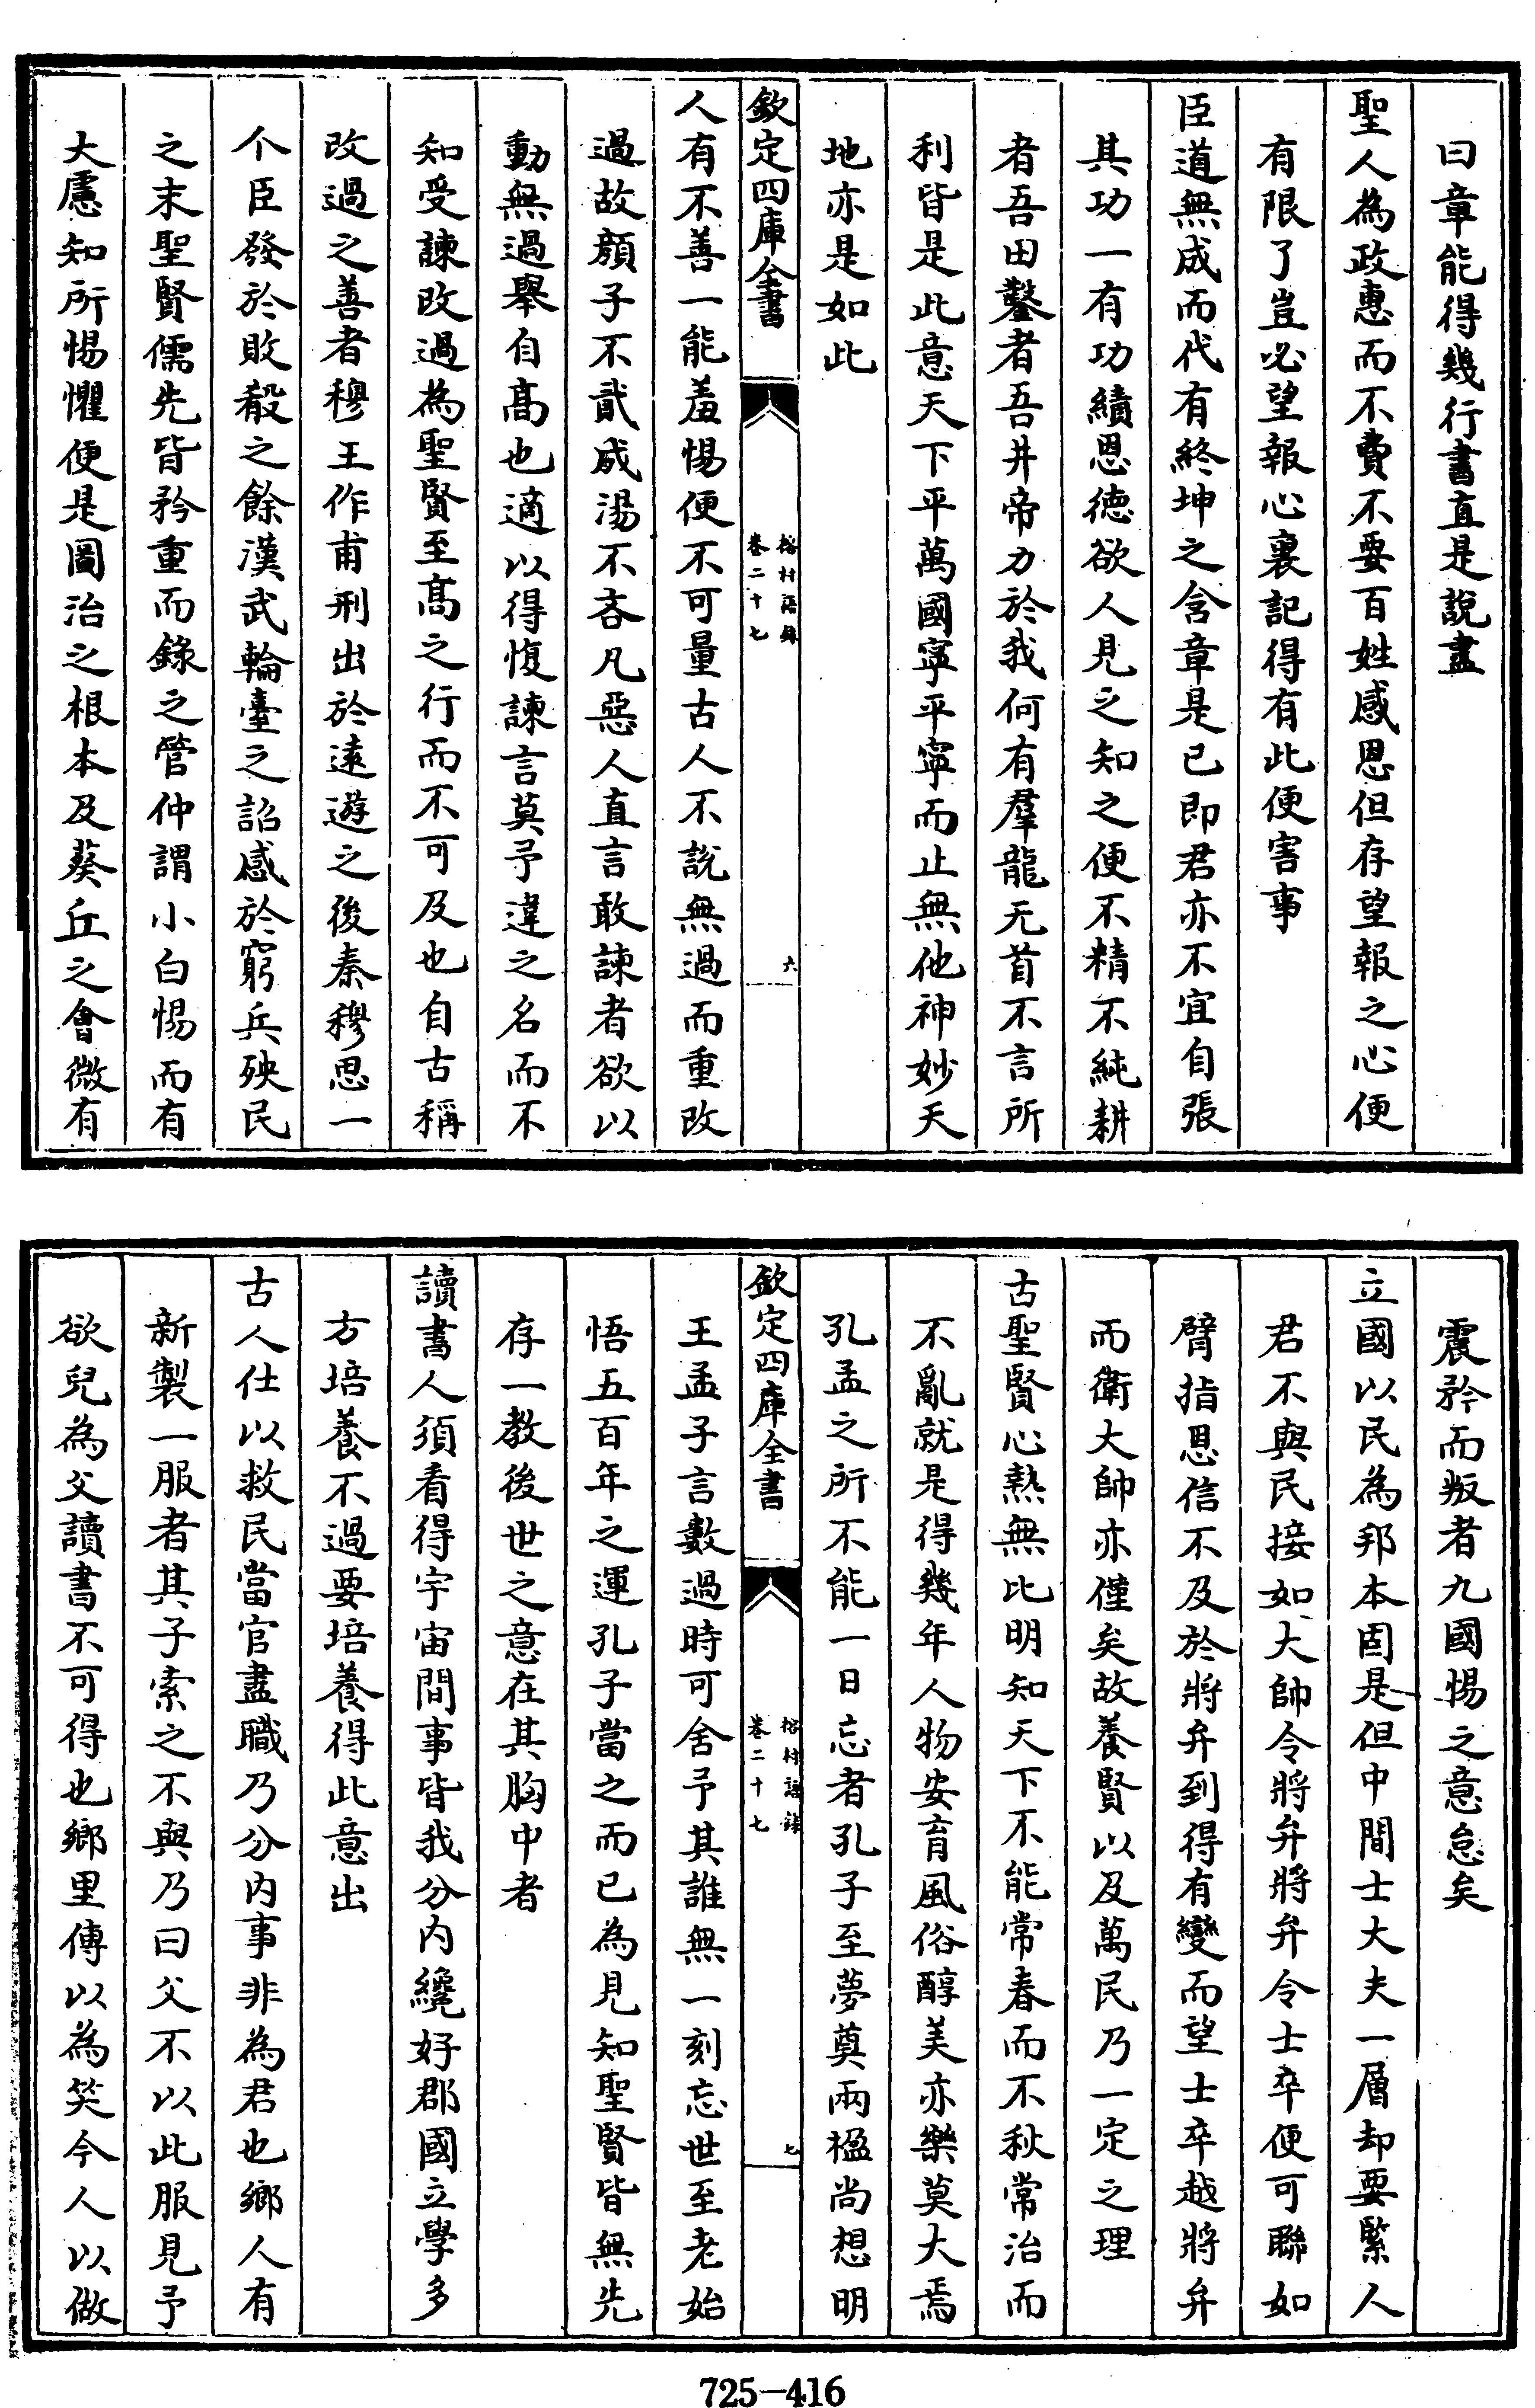 曰章能得幾行書直是說盡
聖人為政惠而不費不要百姓感恩但存望報之心便
有限了豈必望報心裏記得有此便害事
臣道無成而代有終坤之含章是已即君亦不宜自張
其功一有功績恩徳欲人見之知之便不精不純耕
者吾田鑿者吾井帝力於我何有羣龍无首不言所
利皆是此意天下平萬國寧平寧而止無他神妙天
地亦是如此
欽定四庫全書
榕村語錄
卷二十七
六
人有不善一能羞惕便不可量古人不說無過而重改
過故顔子不貳成湯不吝凡惡人直言敢諫者欲以
動無過舉自髙也適以得愎諫言莫予違之名而不
知受諫改過為聖賢至髙之行而不可及也自古稱
改過之善者穆王作甫刑出於逺遊之後秦穆思一
个臣發於敗殽之餘漢武輪臺之詔感於窮兵殃民
之末聖賢儒先皆矜重而錄之管仲謂小白惕而有
大慮知所惕懼便是圖治之根本及葵丘之會微有
震矜而叛者九國惕之意怠矣
立國以民為邦本固是但中間士大夫一層却要緊人
君不與民接如大帥令將弁將弁令士卒便可聯如
臂指恩信不及於將弁到得有變而望士卒越將弁
而衛大帥亦僅矣故養賢以及萬民乃一定之理
古聖賢心熱無比明知天下不能常春而不秋常治而
不亂就是得幾年人物安育風俗醇美亦樂莫大焉
孔孟之所不能一日忘者孔子至夢奠兩楹尚想明
欽定四庫全書
榕村語錄
卷二十七
七
王孟子言數過時可舍予其誰無一刻忘世至老始
悟五百年之運孔子當之而已為見知聖賢皆無先
存一教後世之意在其胸中者
讀書人須看得宇宙間事皆我分内纔好郡國立學多
方培養不過要培養得此意出
古人仕以救民當官盡職乃分内事非為君也鄉人有
新製一服者其子索之不與乃曰父不以此服見予
欲兒為父讀書不可得也鄉里傳以為笑今人以做
725-416